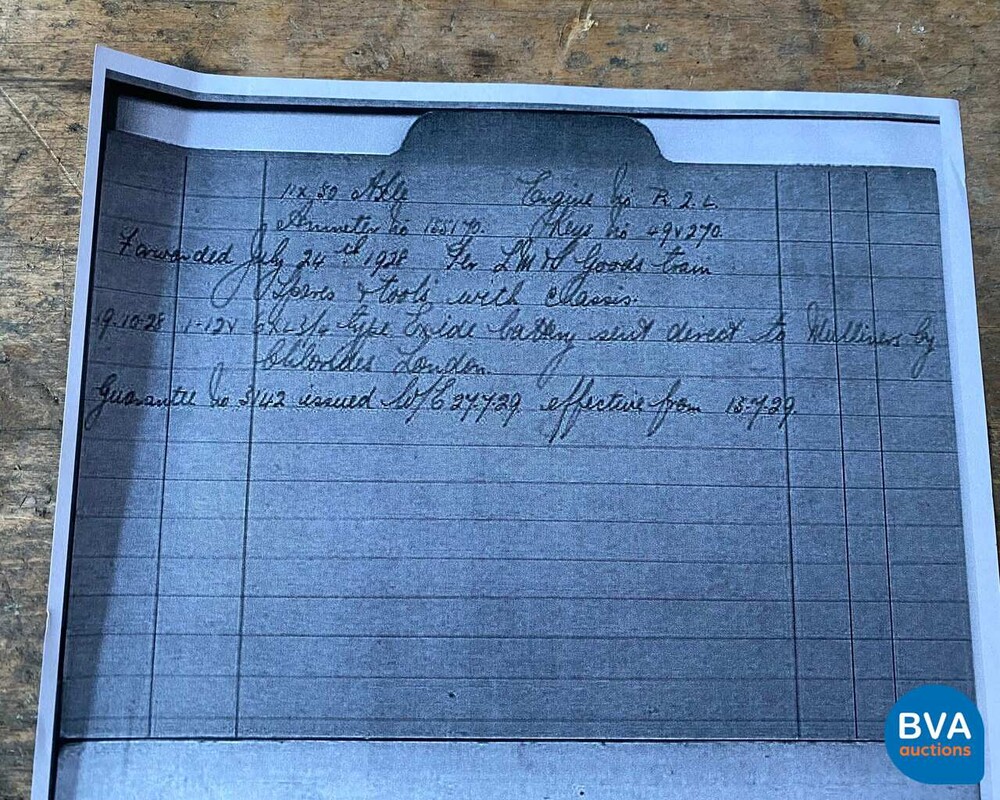 11 x 50 Axle Engine No R.2.L.
Ammeter No 155170. Keys No 49 & 270.
Forwarded July 24th 1928 Per L M & S Goods train
Spares & tools with chassis.
19-10-28 1-12V type Exide battery sent direct to Mulliners by
Chlorides London.
Guarantee No 3142 issued W/E 27-7-29 effective from 15-7-29.
BVA
auctions